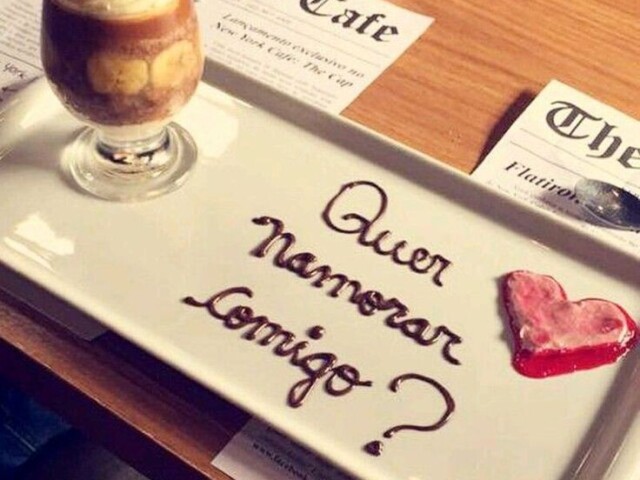 Cafe
Lançamento exclusivo no
New York Cafe: The Cap
York
The
Flatiron
Quer
namorar
comigo
?
www.facebook